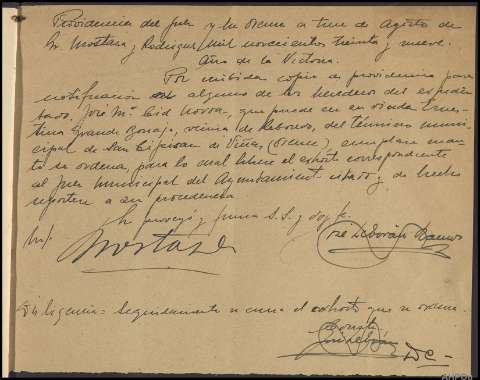 Providencia del Juez y en Orense a trece de Agosto de
Sr. Mostaza y Rodriguez mil novecientos treinta y nueve.
Año de la Victoria.
Por recibida copia de providencia para
notificación a algunos de los herederos del expedien
tado, José Mª Cid Novoa, que puede en su viuda Ernes
tina Grande, vecina de Reboredo, del término muni
cipal de San Ciprian de Viñas, (Orense), cumplase cuan
to se ordena, para lo cual librese el exhorto correspondiente
al Juez municipal del Ayuntamiento citado y de hecho
reportese a su procedencia
Lo proveyó y firma S.S. y doy fe.
Mostaza
José Ramos
Diligencia = Seguidamente se cursa el exhorto que se ordena.
Doy fe